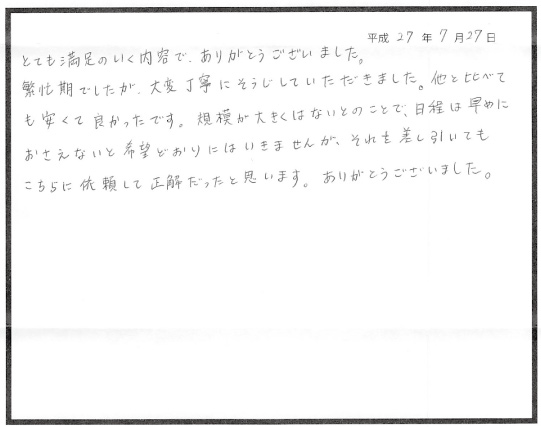 平成 27 年 7 月 27 日
とても満足のいく内容で、ありがとうございました。
繁忙期でしたが、大変丁寧にそうじしていただきました。他と比べて
も安くて良かったです。規模が大きくはないとのことで、日程は早めに
おさえないと希望どおりにはいきませんが、それを差し引いても
こちらに依頼して正解だったと思います。ありがとうございました。